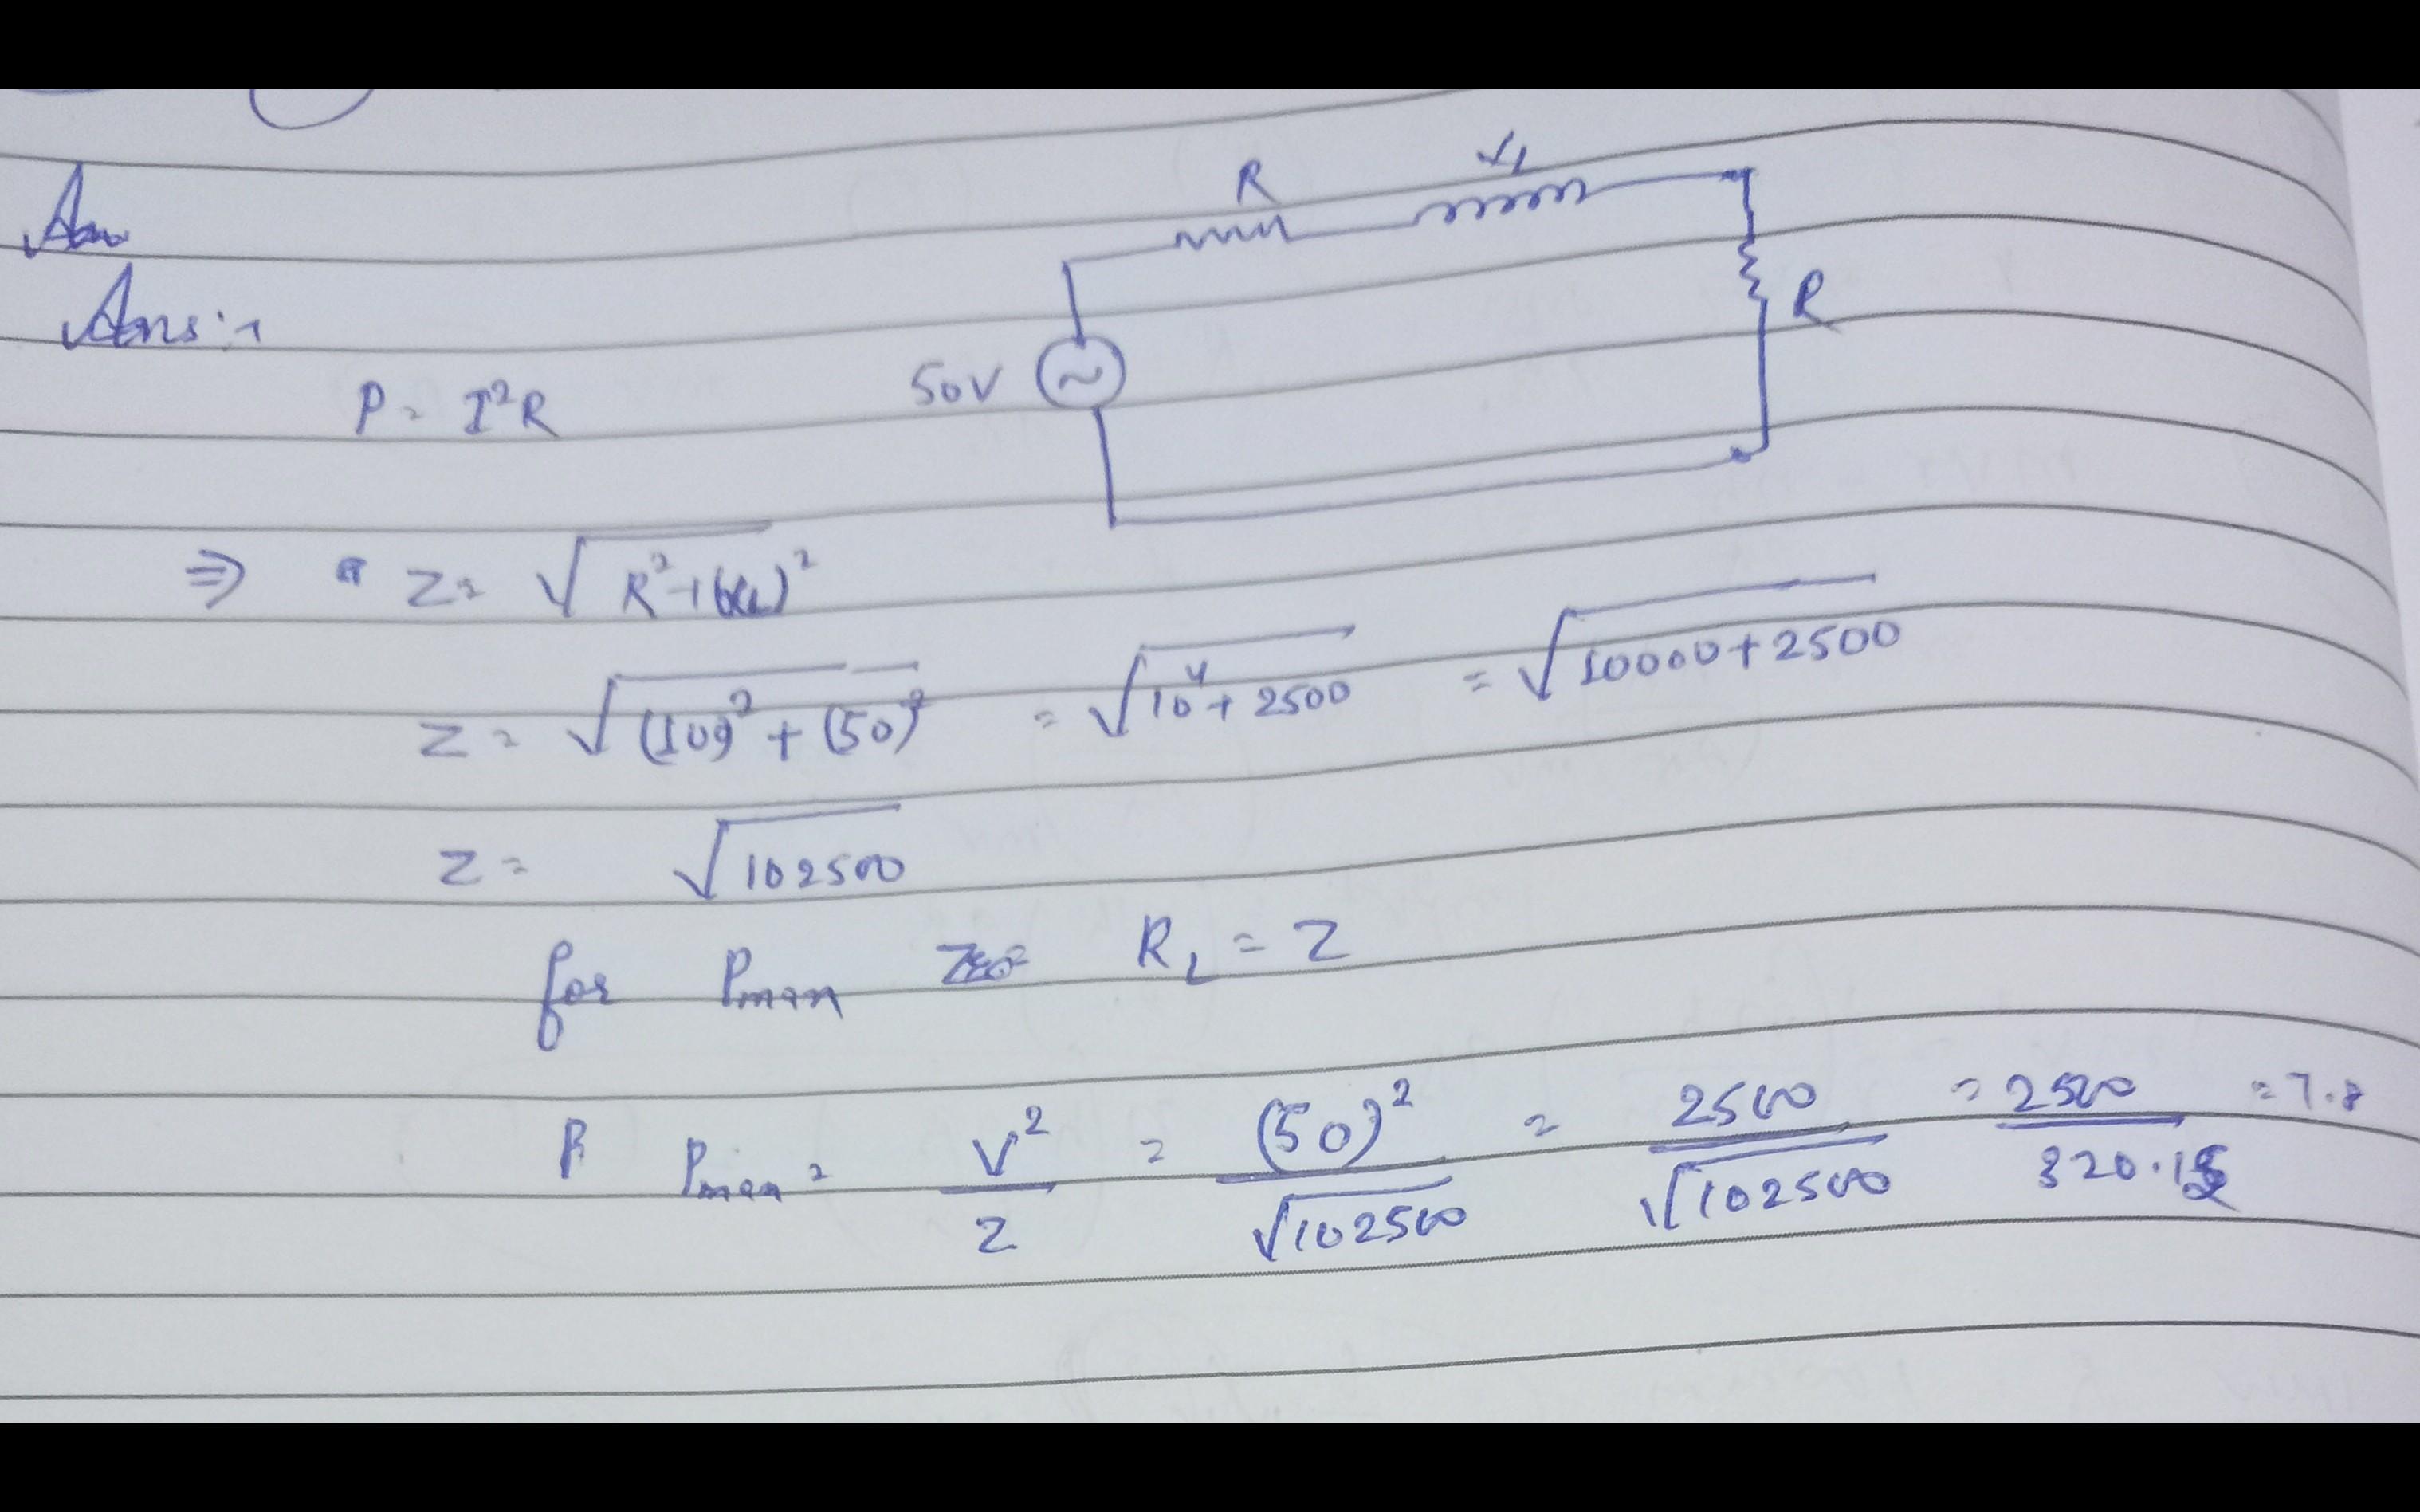 Ans
Ans:-
R
XL
R
50V
P = I²R
⇒ Z = √R²+(XL)²
Z = √(100)²+(50)² = √10⁴+2500 = √10000+2500
Z = √102500
for Pman RL = Z
P Pman = V²/Z = (50)²/√102500 = 2500/√102500 = 2500/320.15 = 7.8